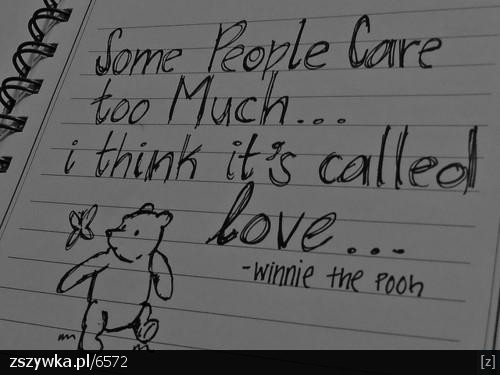 Some People Care
too Much...
i think it's called
love...
-winnie the Pooh
zszywka.pl/6572
[z]